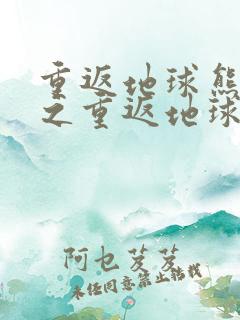 重返地球熊
之重返地球
阿乜芨芨
未经同意禁止转载